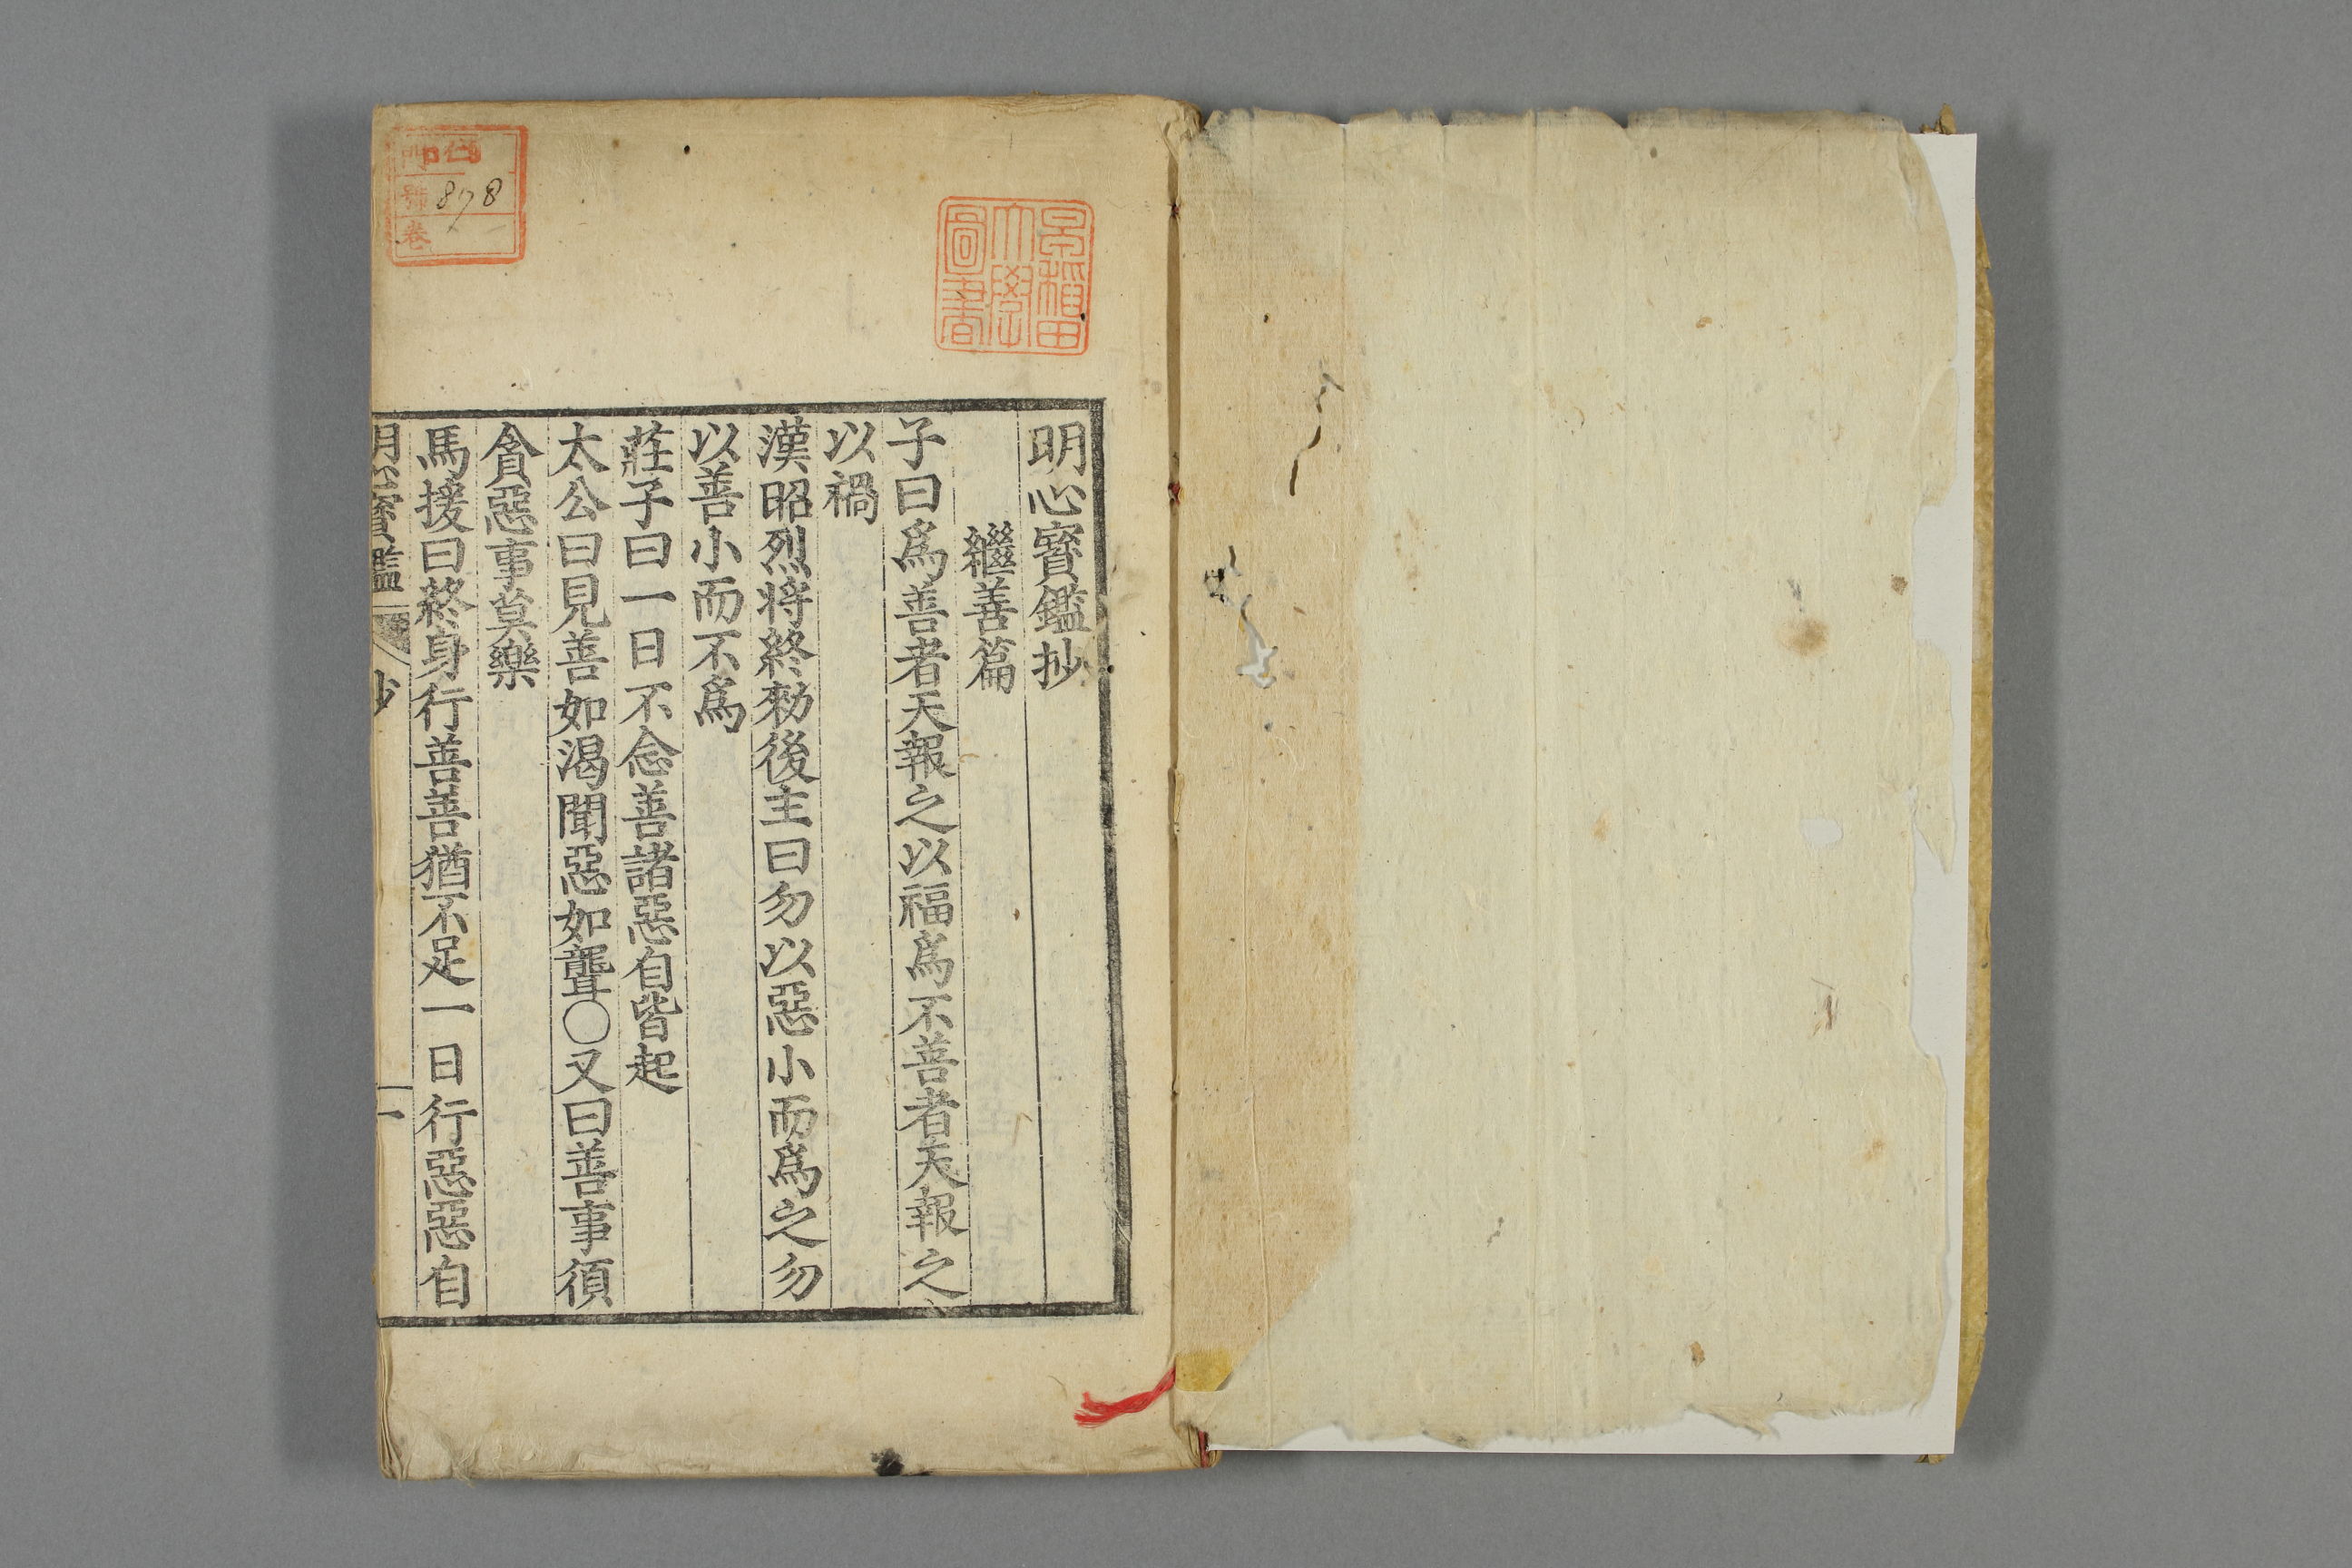 明心寶鑑抄
繼善篇
子曰爲善者天報之以福爲不善者天報之
以禍
漢昭烈将終勑後主曰勿以惡小而爲之勿
以善小而不爲
莊子曰一日不念善諸惡自皆起
太公曰見善如渴聞惡如聾○又曰善事須
貪惡事莫樂
馬援曰終身行善善猶不足一日行惡惡自
明心寶鑑 抄 一
早稲田大學圖書
門
號 878
卷